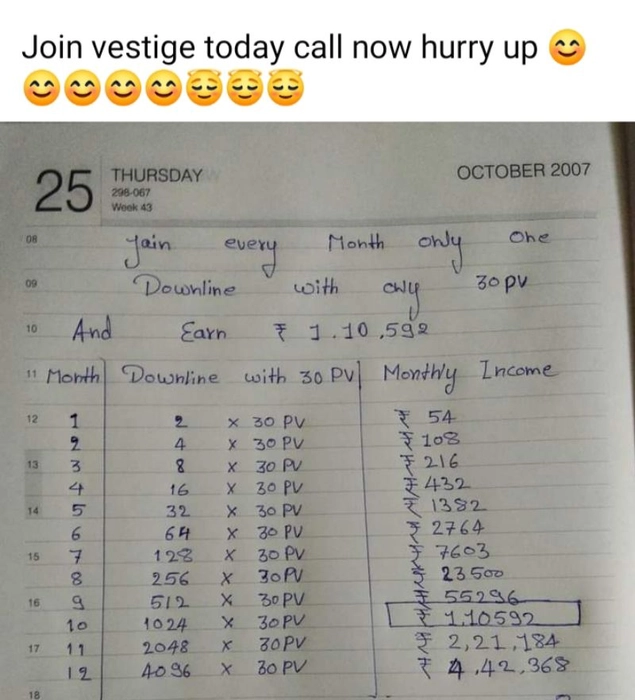 Join vestige today call now hurry up 😊
😊😊😊😊😇😇😇
25 THURSDAY OCTOBER 2007
298-067
Week 43
08 Join every Month only One
09 Downline with only 30 PV
10 And Earn ₹ 1.10,592
11 Month Downline with 30 PV Monthly Income
12 1 2 x 30 PV ₹ 54
2 4 x 30 PV ₹ 108
13 3 8 x 30 PV ₹ 216
4 16 x 30 PV ₹ 432
14 5 32 x 30 PV ₹ 1382
6 64 x 30 PV ₹ 2764
15 7 128 x 30 PV ₹ 7603
8 256 x 30 PV ₹ 23500
16 9 512 x 30 PV ₹ 55296
10 1024 x 30 PV ₹ 1,10592
17 11 2048 x 30 PV ₹ 2,21,184
12 4096 x 30 PV ₹ 4,42,368
18